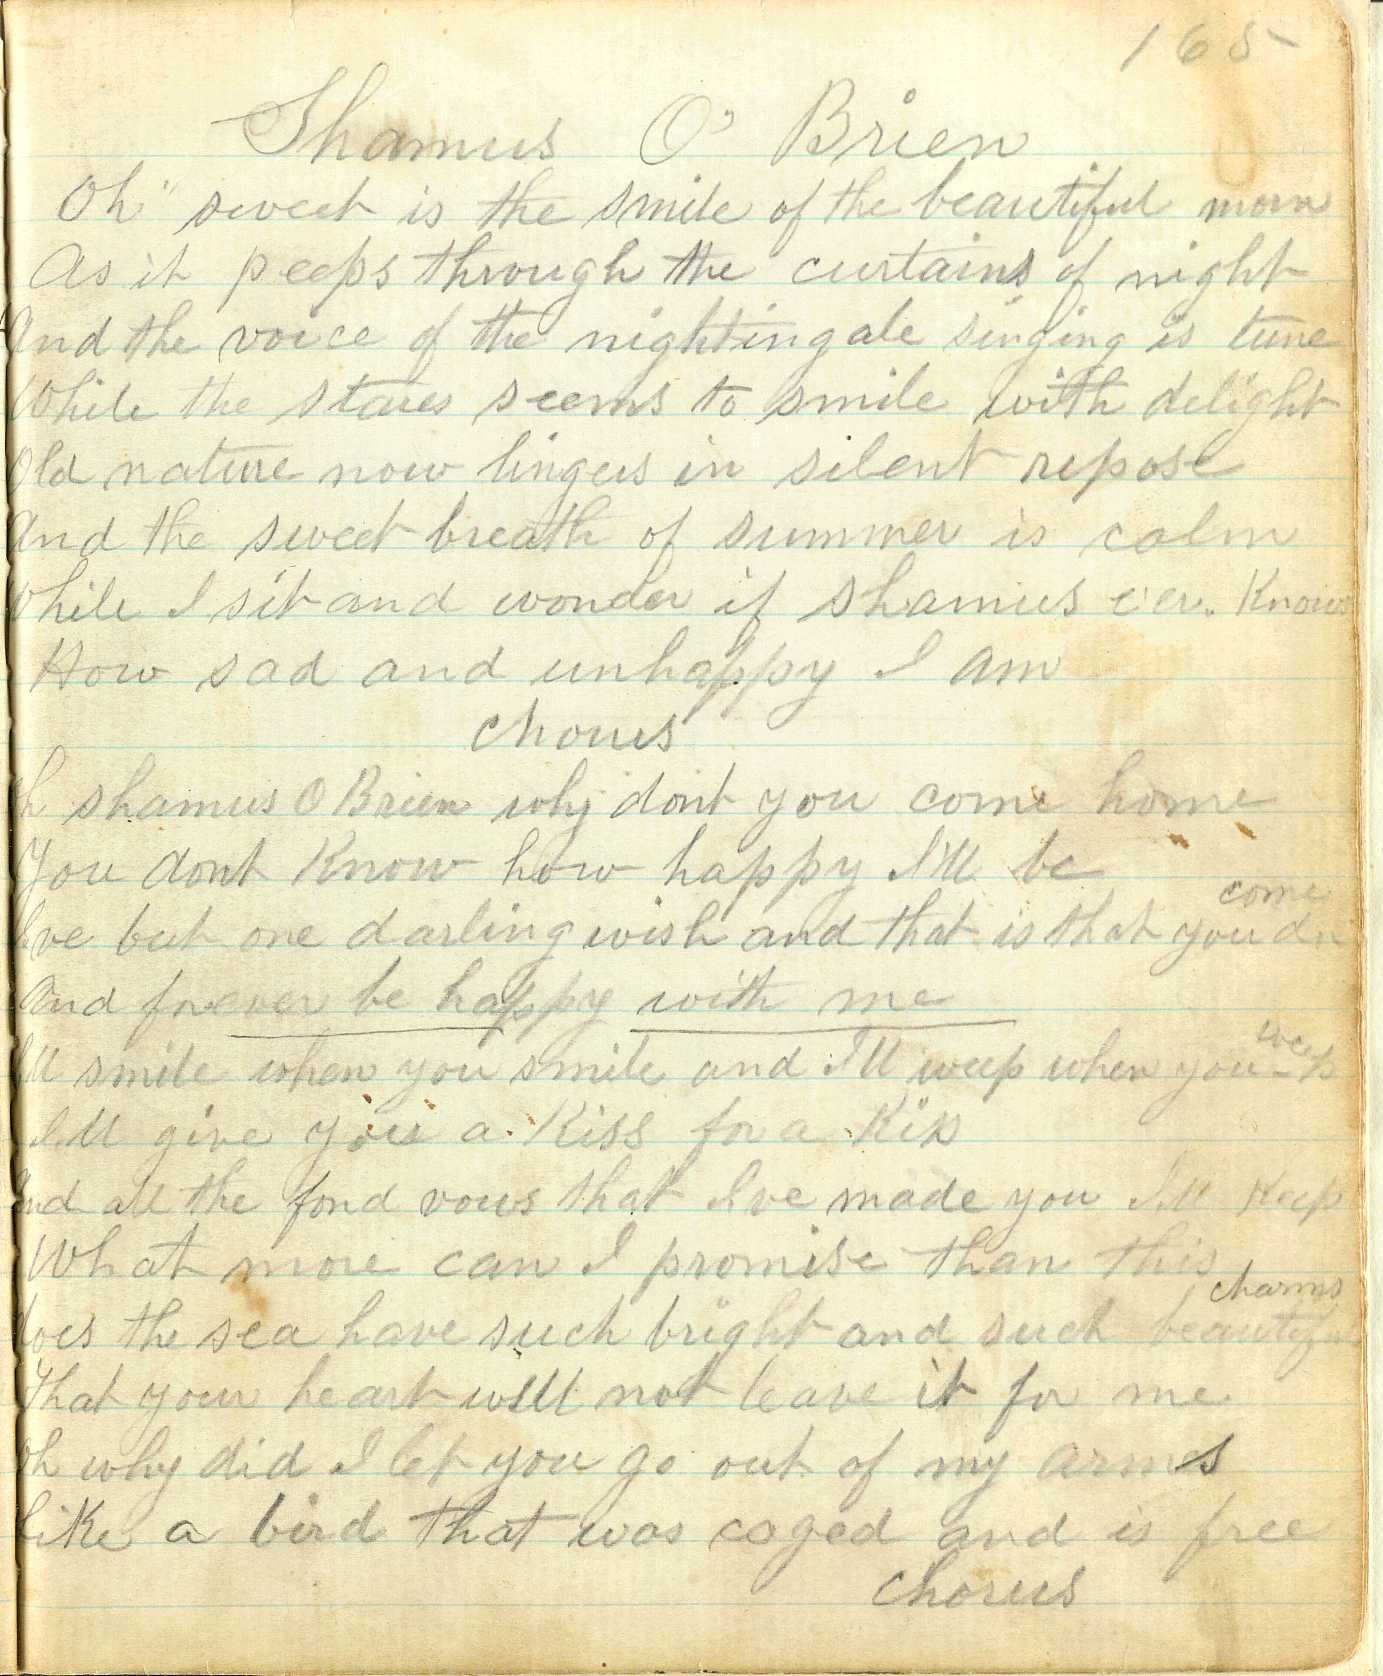 165
Shamus O' Brien
Oh" sweet is the smile of the beautiful morn
As it peeps through the curtains of night
And the voice of the nightingale singing is tune
While the stares seems to smile with delight
Old nature now lingers in silent repose
And the sweet breath of summer is calm
While I sit and wonder if shamus e'er. Knows
How sad and unhappy I am
chorus
Oh shamus O Brien why dont you come home
You dont Know how happy I'll be
come
Ive but one darling wish and that is that you do
And forever be happy with me
weep
I'll smile when you smile and I'll weep when you
I.ll give you a Kiss for a Kiss
And all the fond vows that Ive made you I.ll Keep
What more can I promise than this
charms
does the sea have such bright and such beautiful
That your heart will not leave it for me
Oh why did I let you go out of my arms
like a bird that was caged and is free
chorus